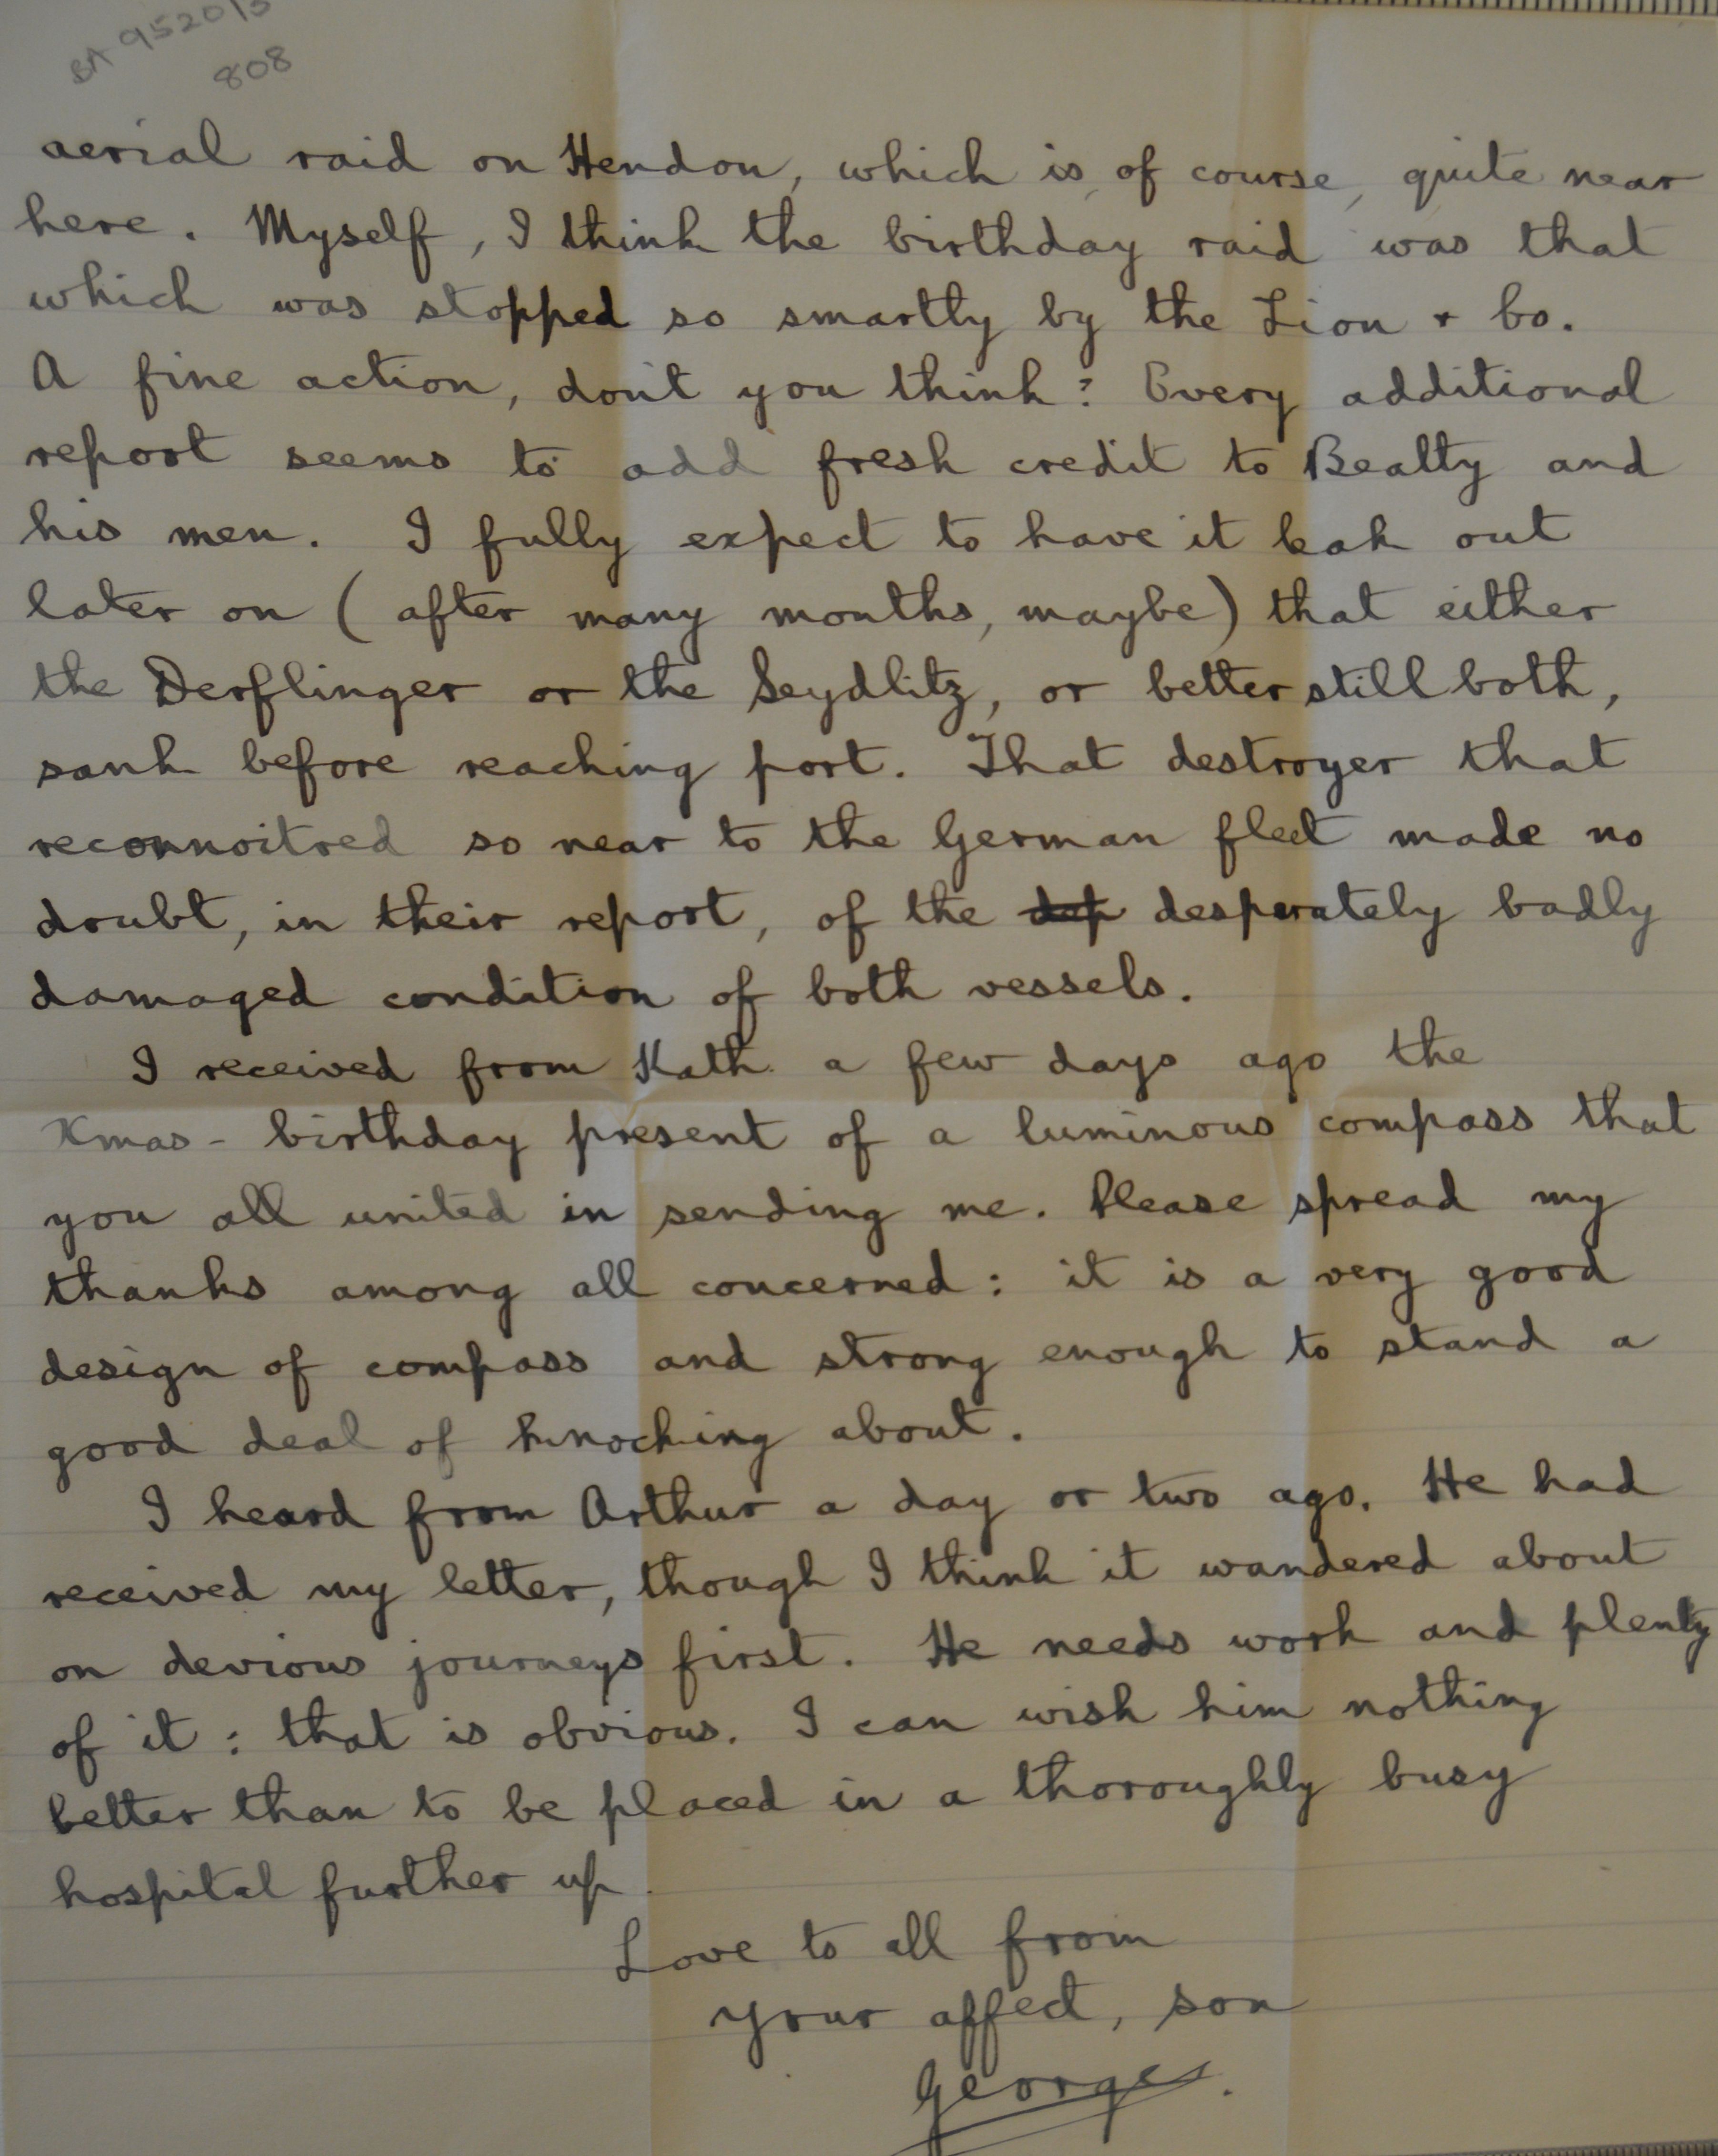 BA 9520/5
808
aerial raid on Hendon, which is, of course, quite near
here. Myself, I think the birthday raid was that
which was stopped so smartly by the Lion & Co.
A fine action, don't you think? Every additional
report seems to add fresh credit to Beatty and
his men. I fully expect to have it leak out
later on (after many months, maybe) that either
the Derflinger or the Seydlitz, or better still both,
sank before reaching port. That destroyer that
reconnoitred so near to the German fleet made no
doubt, in their report, of the dep desperately badly
damaged condition of both vessels.
I received from Kath a few days ago the
Xmas - birthday present of a luminous compass that
you all united in sending me. Please spread my
thanks among all concerned: it is a very good
design of compass and strong enough to stand a
good deal of knocking about.
I heard from Arthur a day or two ago. He had
received my letter, though I think it wandered about
on devious journeys first. He needs work and plenty
of it: that is obvious. I can wish him nothing
better than to be placed in a thoroughly busy
hospital further up.
Love to all from
your affect, son
George.